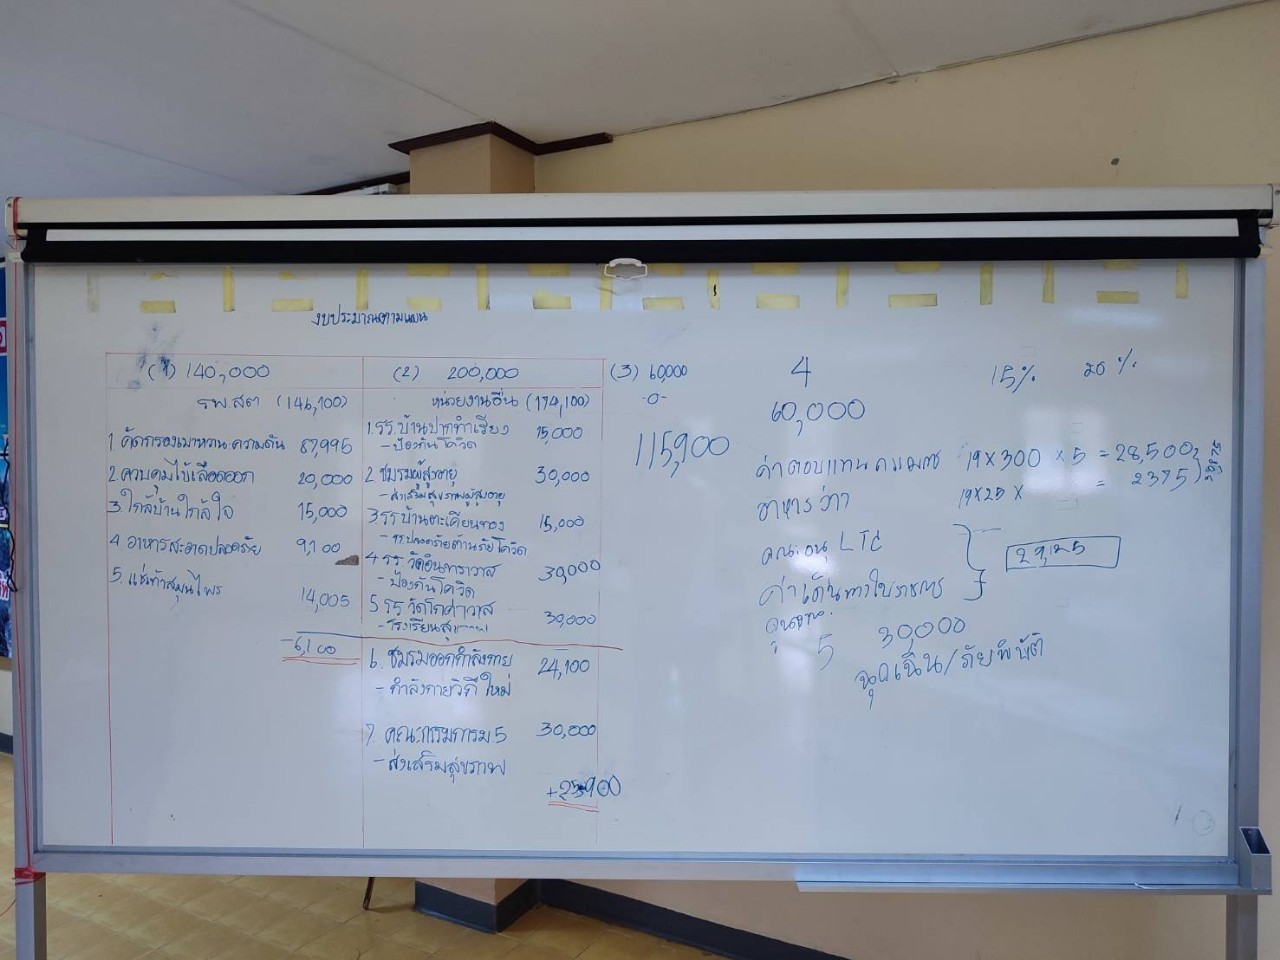 งบประมาณตามแผน
(1) 140,000
รพ.สต (146,100)
1 คัดกรองเบาหวาน ความดัน 87,995
2 ควบคุมไข้เลือดออก 20,000
3 ใกล้บ้านใกล้ใจ 15,000
4 อาหารสะอาดปลอดภัย 9,100
5. แช่เท้าสมุนไพร 14,005
-6,100
(2) 200,000
หน่วยงานอื่น (174,100)
1. รร. บ้านปากทำเรียง 15,000
- ป้องกันโควิด
2 ชมรมผู้สูงอายุ 30,000
- ส่งเสริมสุขภาพผู้สูงอายุ
3 รร บ้านตะเคียนทอง 15,000
- รร ปลอดภัยต้านภัยโควิด
4 รร. วัดอินทาราวาส 30,000
- ป้องกันโควิด
5 รร วัดโภคาวาส 30,000
6. ชมรมออกกำลังกาย 24,100
- กำลังกายวิถีใหม่
7. คณะกรรมการ ม5 30,000
- ส่งเสริมสุขภาพ
+25900
(3) 60,000
-0-
115,900
4
60,000
15% 20%
ค่าตอบแทนกรรมการ 19 x 300 x 5 = 28,500
อาหารว่าง 19 x 25 x = 2375
คณะอนุ LTC
29,125
ค่าเดินทางไปราชการ
5 30,000
ฉุกเฉิน/ภัยพิบัติ